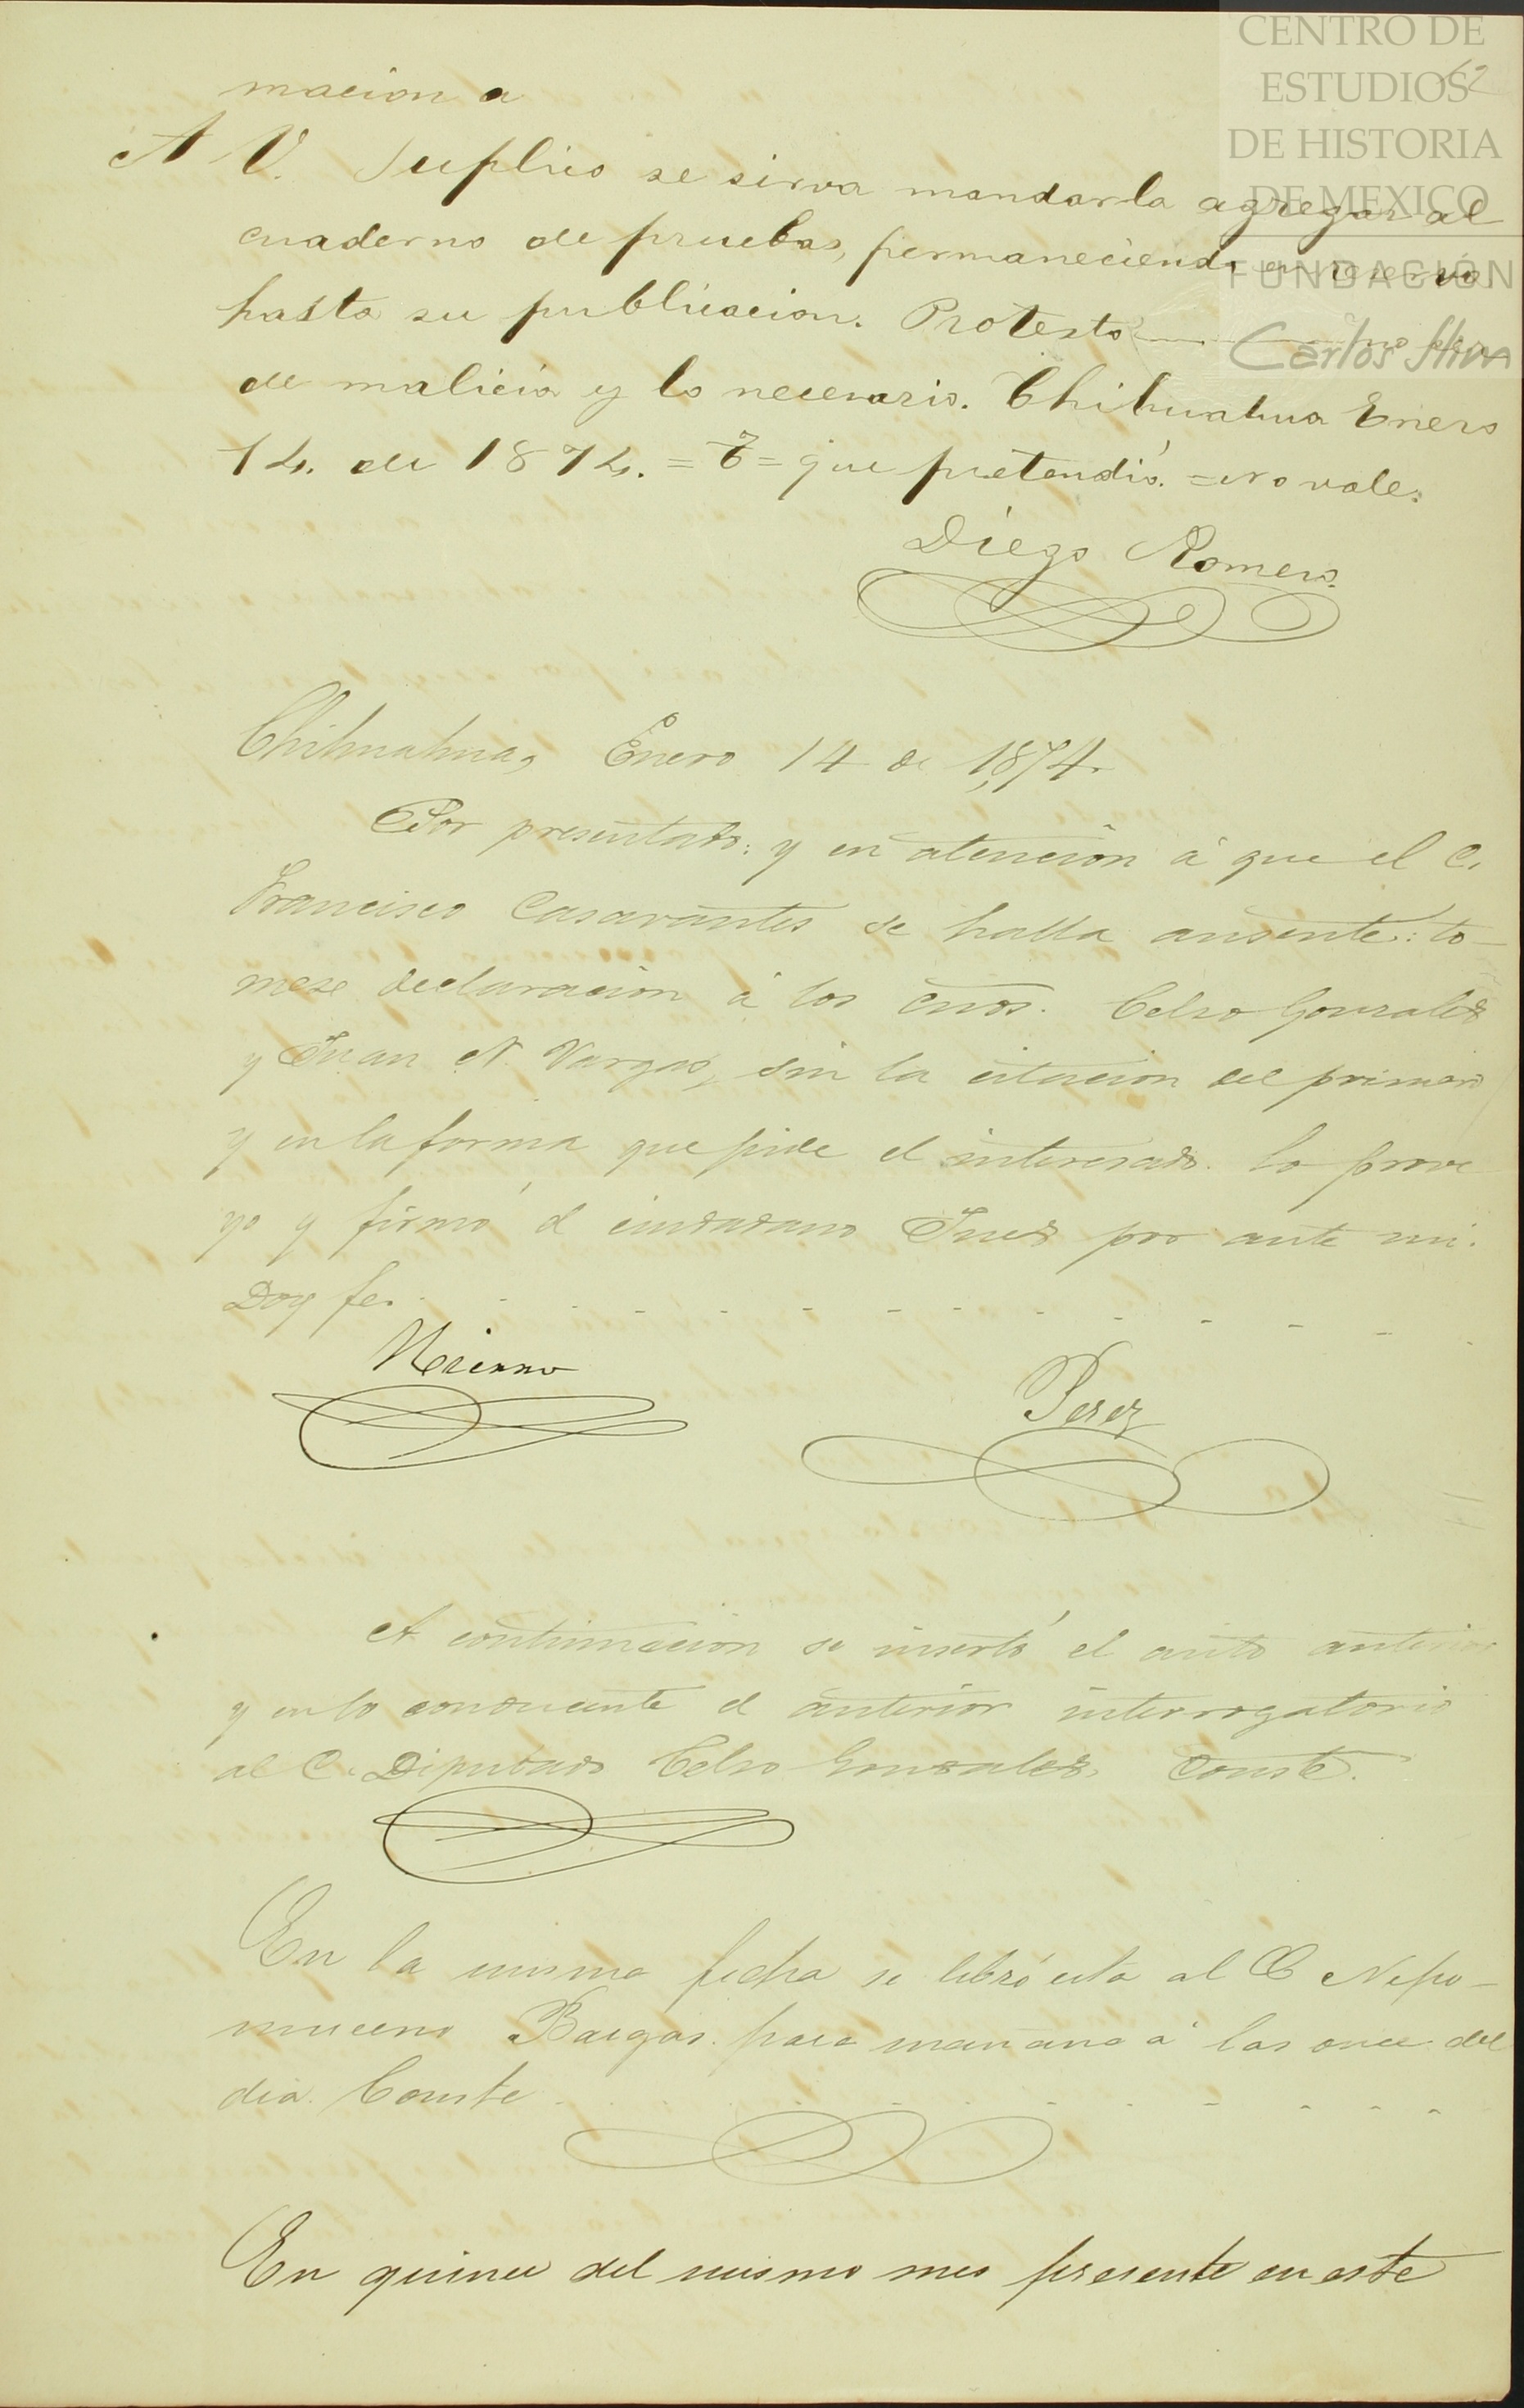 CENTRO DE
ESTUDIOS
DE HISTORIA
DE MEXICO
FUNDACIÓN
Carlos Slim
macion a
A V. Suplico se sirva mandarla agregar al
cuaderno de pruebas, permaneciendo en reserva
hasta su publicacion. Protesto no ser
de malicia y lo necesario. Chihuahua Enero
14. de 1874. = T = que pretendió. = No vale.
Diego Romero.
Chihuahua, Enero 14 de 1,874.
Por presentado: y en atencion á que el C.
Francisco Casavantes se halla ausente: to-
mese declaracion á los CC. Celso Gonzalez
y Juan N. Vargas, sin la citacion del primero
y en la forma que pide el interesado. Lo prove
yo y firmó el ciudadano Juez por ante mi.
Doy fe.
Merino
Perez
A continuacion se insertó el auto anterior
y en lo conducente el anterior interrogatorio
al C. Diputado Celso Gonzalez. Conste.
En la misma fecha se libró cita al C Nepo-
muceno Bargas para mañana á las once del
dia. Conste
En quince del mismo mes presente en este